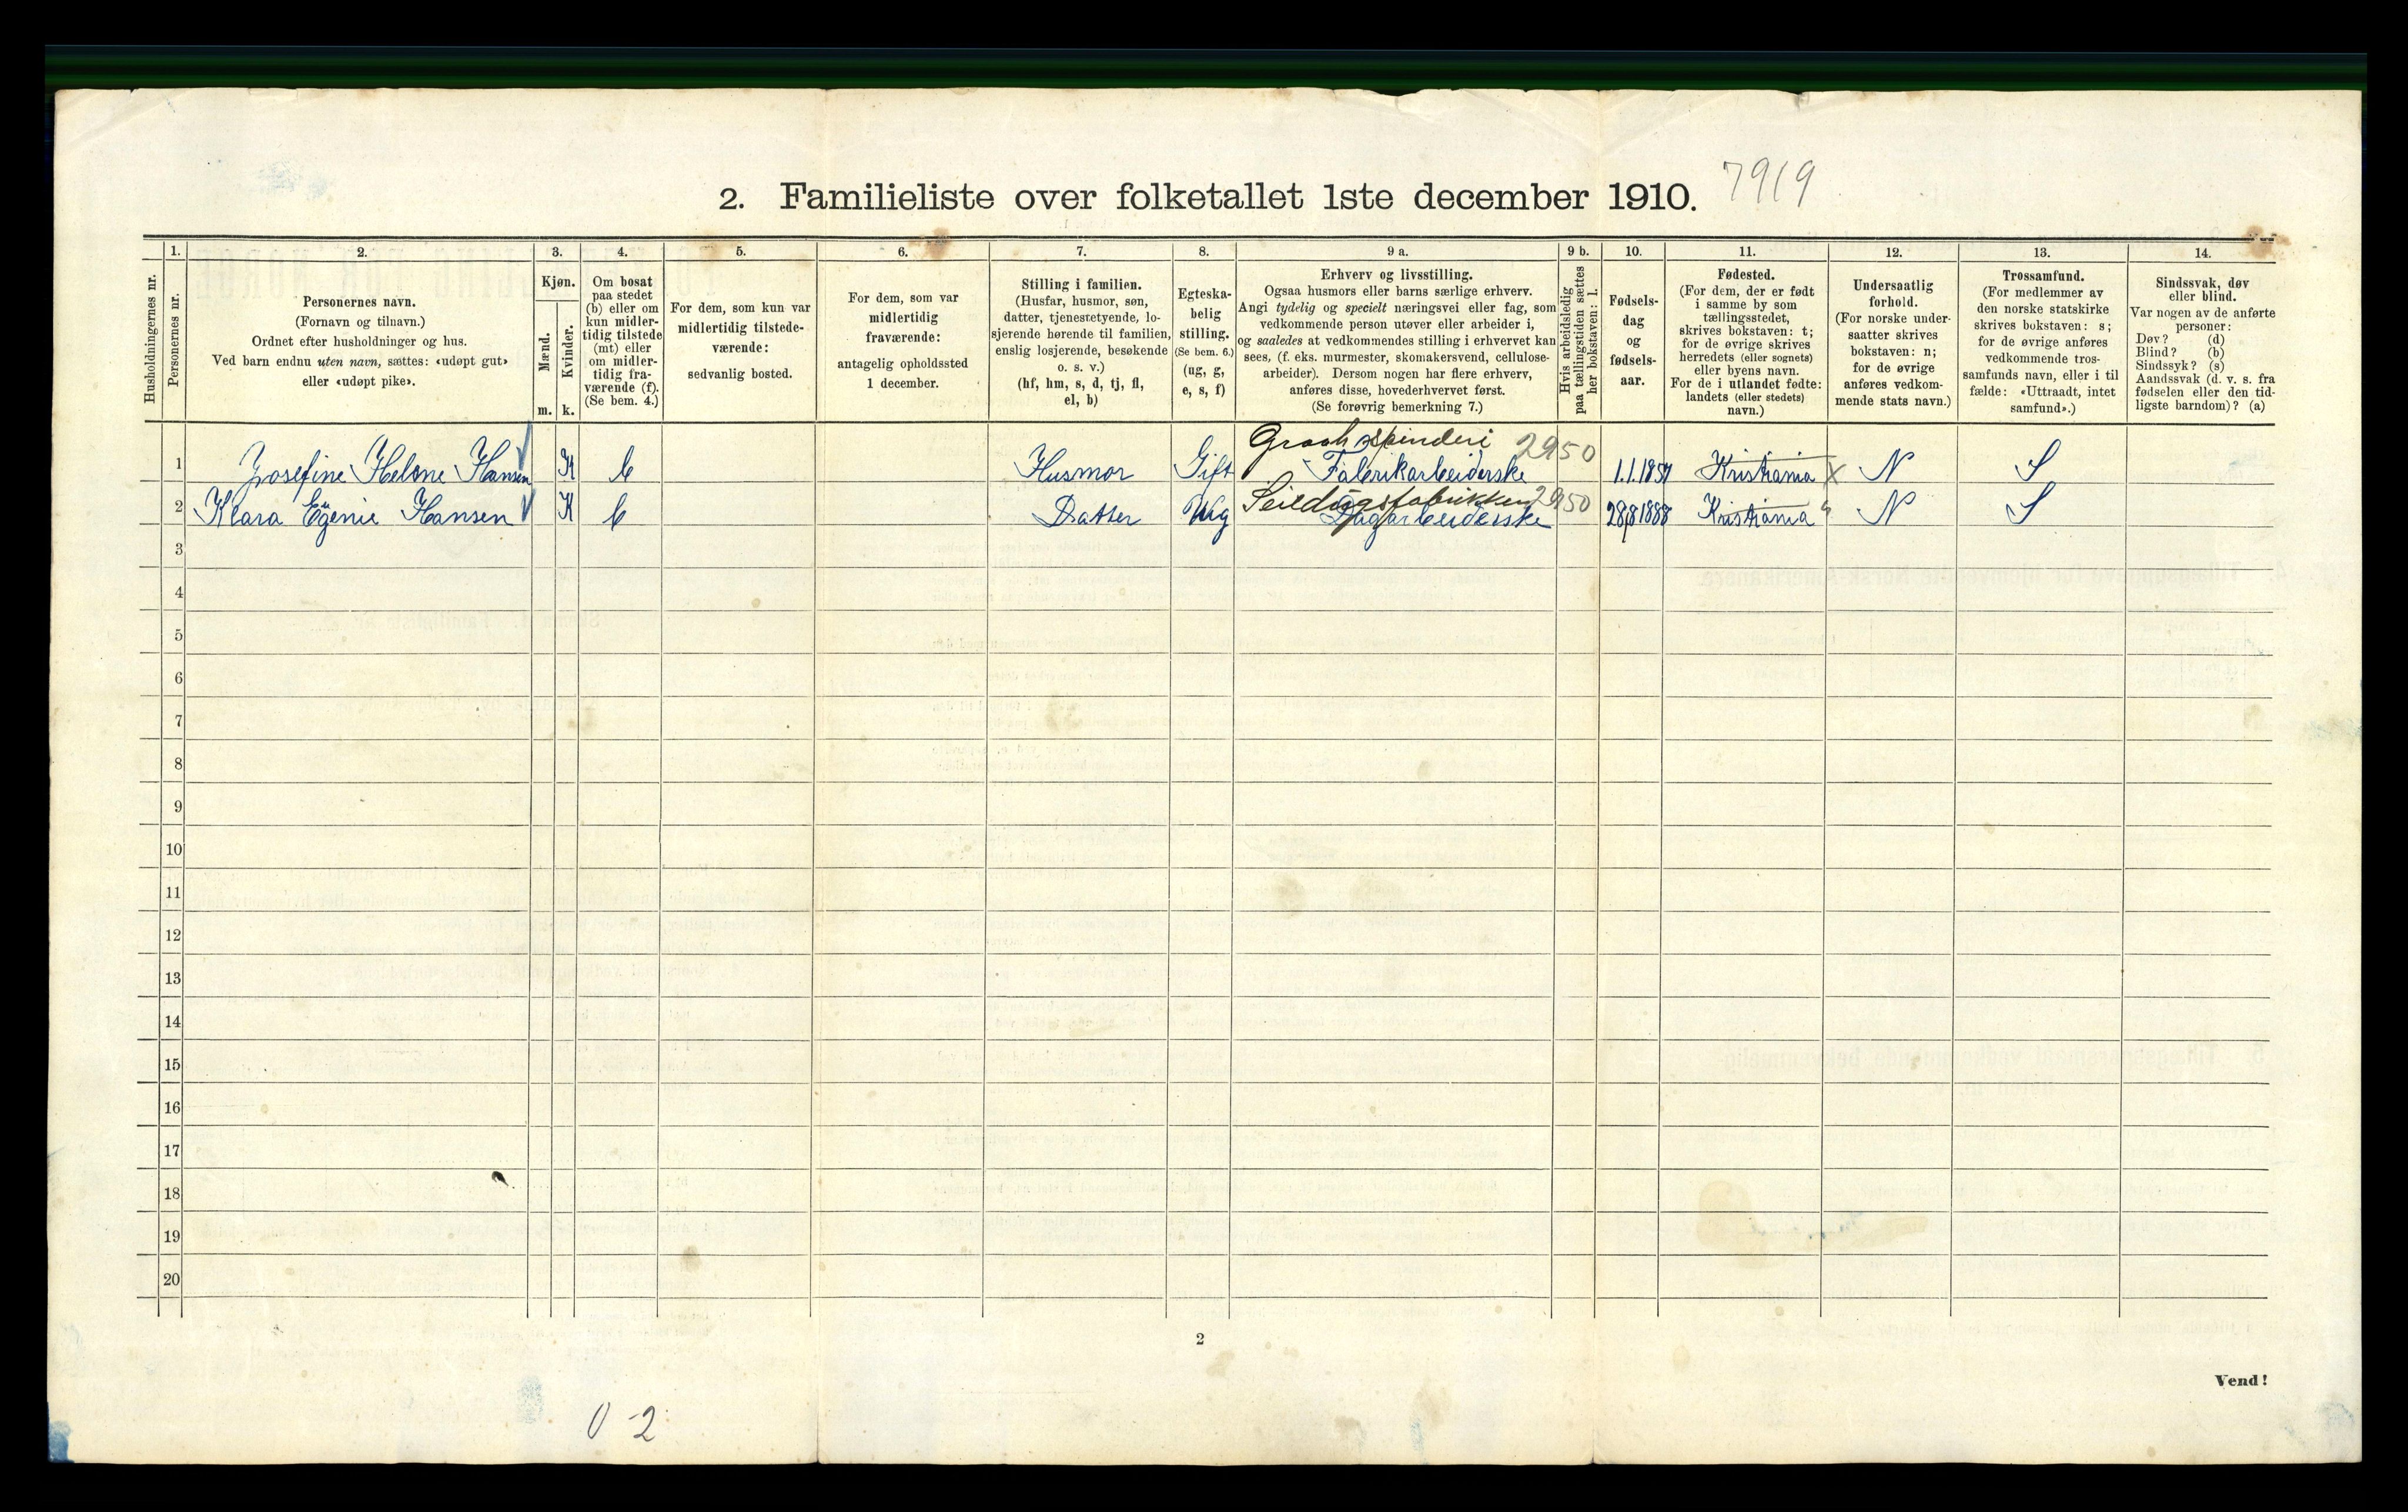 2. Familieliste over folketallet 1ste december 1910. 7919
Husholdningernes nr.
1.
Personernes nr.
2.
Personernes navn.
(Fornavn og tilnavn.)
Ordnet efter husholdninger og hus.
Ved barn endnu uten navn, sættes: «udøpt gut»
eller «udøpt pike».
3.
Kjøn.
Mænd.
Kvinder.
m. k.
4.
Om bosat
paa stedet
(b) eller om
kun midler-
tidig tilstede
(mt) eller
om midler-
tidig fra-
værende (f).
(Se bem. 4.)
5.
For dem, som kun var
midlertidig tilstede-
værende:
sedvanlig bosted.
6.
For dem, som var
midlertidig
fraværende:
antagelig opholdssted
1 december.
7.
Stilling i familien.
(Husfar, husmor, søn,
datter, tjenestetyende, lo-
sjerende hørende til familien,
enslig losjerende, besøkende
o. s. v.)
(hf, hm, s, d, tj, fl,
el, b)
8.
Egteska-
belig
stilling.
(Se bem. 6.)
(ug, g,
e, s, f)
9 a.
Erhverv og livsstilling.
Ogsaa husmors eller barns særlige erhverv.
Angi tydelig og specielt næringsvei eller fag, som
vedkommende person utøver eller arbeider i,
og saaledes at vedkommendes stilling i erhvervet kan
sees, (f. eks. murmester, skomakersvend, cellulose-
arbeider). Dersom nogen har flere erhverv,
anføres disse, hovederhvervet først.
(Se forøvrig bemerkning 7.)
9 b.
Hvis arbeidsledig
paa tællingstiden sættes
her bokstaven: l.
10.
Fødsels-
dag
og
fødsels-
aar.
11.
Fødested.
(For dem, der er født
i samme by som
tællingsstedet,
skrives bokstaven: t;
for de øvrige skrives
herredets (eller sognets)
eller byens navn.
For de i utlandet fødte:
landets (eller stedets)
navn.)
12.
Undersaatlig
forhold.
(For norske under-
saatter skrives
bokstaven: n;
for de øvrige
anføres vedkom-
mende stats navn.)
13.
Trossamfund.
(For medlemmer av
den norske statskirke
skrives bokstaven: s;
for de øvrige anføres
vedkommende tros-
samfunds navn, eller i til
fælde: «Uttraadt, intet
samfund».)
14.
Sindssvak, døv
eller blind.
Var nogen av de anførte
personer:
Døv? (d)
Blind? (b)
Sindssyk? (s)
Aandssvak (d. v. s. fra
fødselen eller den tid-
ligste barndom)? (a)
Graah spinderi 2950
1 Josefine Helene Hansen K b Husmor Gift Fabrikarbeiderske 1.1.1857 Kristiania X N S
Seildugsfabrikken 2950
2 Klara Egenie Hansen K b Datter Ug Dagarbeiderske 28/8 1888 Kristiania N S
3
4
5
6
7
8
9
10
11
12
13
14
15
16
17
18
19
20
2
Vend!
0 - 2